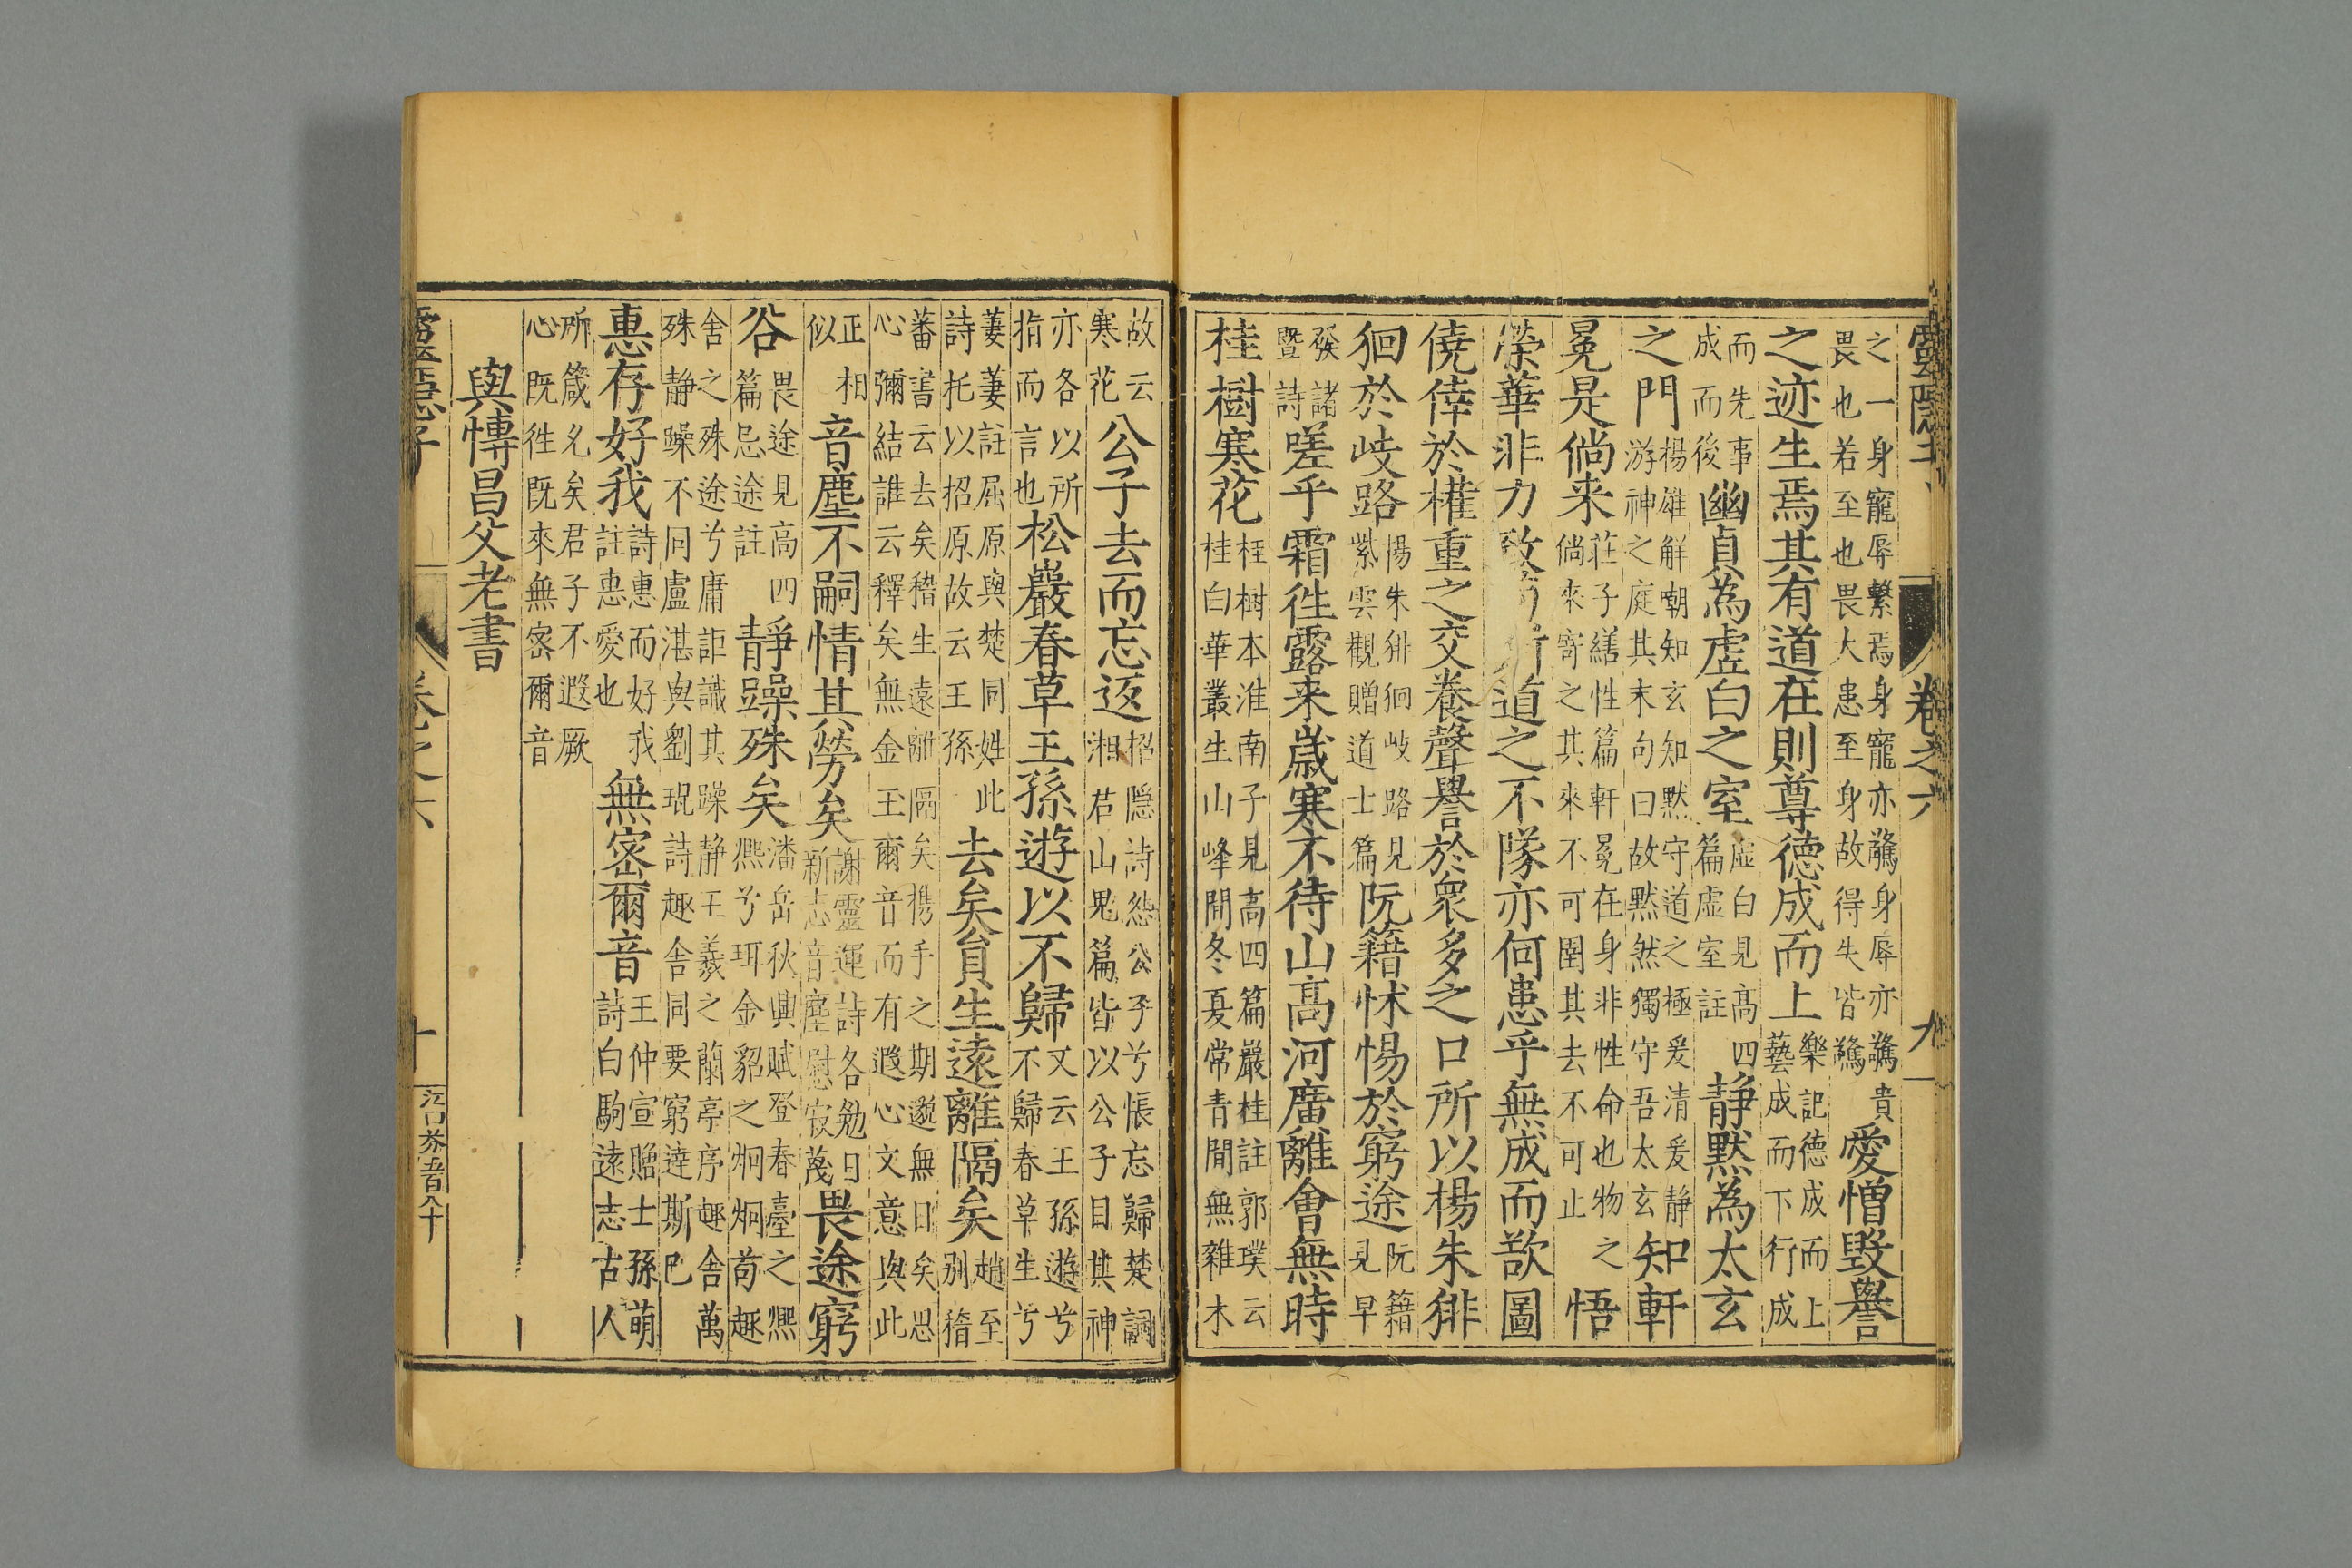 靈隱子 卷之六 九
之一身寵辱繫焉身寵亦驚身辱亦驚貴
畏也若至也畏大患至身故得失皆驚
愛憎毀譽
之迹生焉其有道在則尊德成而上
樂記德成而上
藝成而下行成
而先事
成而後
幽貞為虛白之室
虛白見髙四
篇虛室註
静默為太玄
之門
楊雄解嘲知玄知默守道之極爰清爰静
游神之庭其末句曰故默然獨守吾太玄
知軒
冕是倘来
莊子繕性篇軒冕在身非性命也物之
倘來寄之其來不可圉其去不可止
悟
榮華非力致道之不隊亦何患乎無成而歆圖
僥倖於權重之交養聲譽於衆多之口所以楊朱徘
徊於岐路
楊朱徘徊岐路見
紫雲觀贈道士篇
阮籍怵惕於窮途
阮籍
見早
發諸
曁詩
嗟乎霜徃露来歳寒不待山髙河廣離會無時
桂樹寒花
桂樹本淮南子見高四篇巖桂註郭璞云
桂白華叢生山峰間冬夏常青間無雜木
故云
寒花
公子去而忘返
招隱詩怨公子兮悵忘歸楚詞
湘君山鬼篇皆以公子目其神
亦各以所
指而言也
松巖春草王孫遊以不歸
又云王孫遊兮
不歸春草生兮
萋萋註屈原與楚同姓此
詩托以招原故云王孫
去矣貟生遠離隔矣
趙至
别嵇
蕃書云去矣嵇生遠離隔矣携手之期邈無日矣思
心彌結誰云釋矣無金玉爾音而有遐心文意與此
正相
似
音塵不嗣情其勞矣
謝靈運詩各勉日
新志音塵慰寂蔑
畏途窮
谷
畏途見高四
篇忌途註
静躁殊矣
潘岳秋興賦登春臺之熈
熈兮珥金貂之炯炯苟趣
舍之殊途兮庸詎識其躁静王羲之蘭亭序趣舍萬
殊静躁不同盧湛與劉琨詩趣舍同要窮逹斯已
惠存好我
詩惠而好我
註惠愛也
無宻爾音
王仲宣贈士孫萌
詩白駒遠志古人
所箴允矣君子不遐厥
心既徃既來無宻爾音
與博昌父老書
靈隱子 卷之六 十